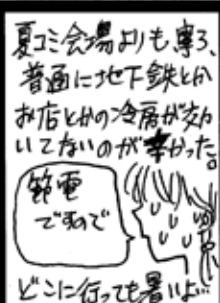 夏コミ会場よりも、寧ろ、
普通に地下鉄とか
お店とかの冷房が効
いてないのが辛かった。
節電
ですので
どこに行っても暑いよ…